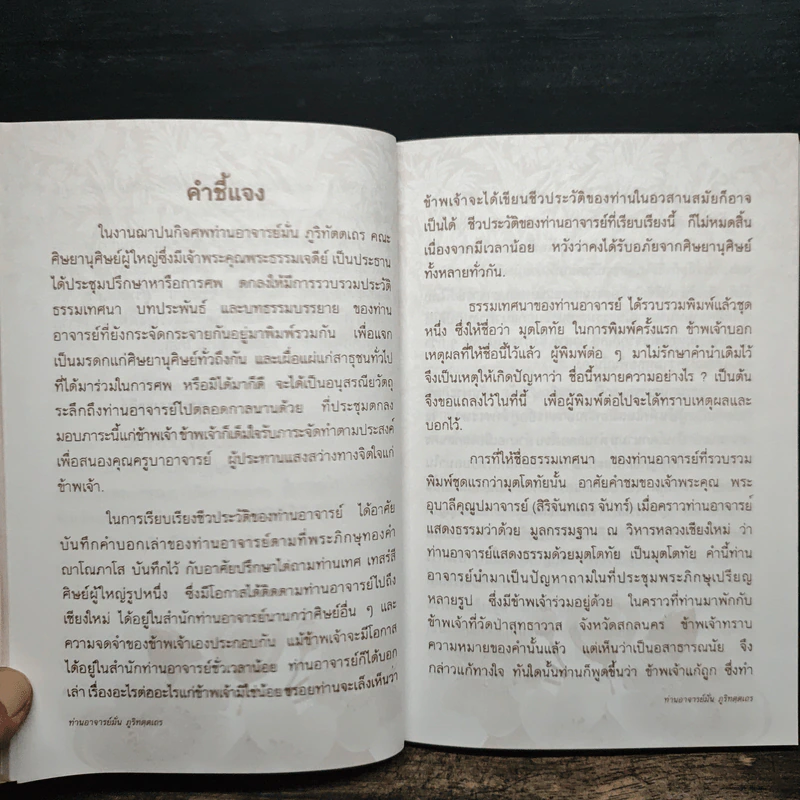 คำชี้แจง
ในงานฌาปนกิจศพท่านอาจารย์มั่น ภูริทัตตเถร คณะ
ศิษยานุศิษย์ผู้ใหญ่ซึ่งมีเจ้าพระคุณพระธรรมเจดีย์ เป็นประธาน
ได้ประชุมปรึกษาหารือการศพ ตกลงให้มีการรวบรวมประวัติ
ธรรมเทศนา บทประพันธ์ และบทธรรมบรรยาย ของท่าน
อาจารย์ที่ยังกระจัดกระจายกันอยู่มาพิมพ์รวมกัน เพื่อแจก
เป็นมรดกแก่ศิษยานุศิษย์ทั่วถึงกัน และเผื่อแผ่แก่สาธุชนทั่วไป
ที่ได้มาร่วมในการศพ หรือมิได้มาก็ดี จะได้เป็นอนุสรณียวัตถุ
ระลึกถึงท่านอาจารย์ไปตลอดกาลนานด้วย ที่ประชุมตกลง
มอบภาระนี้แก่ข้าพเจ้า ข้าพเจ้าก็เต็มใจรับภาระจัดทำตามประสงค์
เพื่อสนองคุณครูบาอาจารย์ ผู้ประทานแสงสว่างทางจิตใจแก่
ข้าพเจ้า.
ในการเรียบเรียงชีวประวัติของท่านอาจารย์ ได้อาศัย
บันทึกคำบอกเล่าของท่านอาจารย์ตามที่พระภิกษุทองคำ
ญาโณภาโส บันทึกไว้ กับอาศัยปรึกษาไต่ถามท่านเทศ เทสรํสี
ศิษย์ผู้ใหญ่รูปหนึ่ง ซึ่งมีโอกาสได้ติดตามท่านอาจารย์ไปถึง
เชียงใหม่ ได้อยู่ในสำนักท่านอาจารย์นานกว่าศิษย์อื่น ๆ และ
ความจดจำของข้าพเจ้าเองประกอบกัน แม้ข้าพเจ้าจะมีโอกาส
ได้อยู่ในสำนักท่านอาจารย์ชั่วเวลาน้อย ท่านอาจารย์ก็ได้บอก
เล่า เรื่องอะไรต่ออะไรแก่ข้าพเจ้ามิใช่น้อย ชรอยท่านจะเล็งเห็นว่า
ท่านอาจารย์มั่น ภูริทตฺตเถร
ข้าพเจ้าจะได้เขียนชีวประวัติของท่านในอวสานสมัยก็อาจ
เป็นได้ ชีวประวัติของท่านอาจารย์ที่เรียบเรียงนี้ ก็ไม่หมดสิ้น
เนื่องจากมีเวลาน้อย หวังว่าคงได้รับอภัยจากศิษยานุศิษย์
ทั้งหลายทั่วกัน.
ธรรมเทศนาของท่านอาจารย์ ได้รวบรวมพิมพ์แล้วชุด
หนึ่ง ซึ่งให้ชื่อว่า มุตโตทัย ในการพิมพ์ครั้งแรก ข้าพเจ้าบอก
เหตุผลที่ให้ชื่อนี้ไว้แล้ว ผู้พิมพ์ต่อ ๆ มาไม่รักษาคำนำเดิมไว้
จึงเป็นเหตุให้เกิดปัญหาว่า ชื่อนี้หมายความอย่างไร ? เป็นต้น
จึงขอแถลงไว้ในที่นี้ เพื่อผู้พิมพ์ต่อไปจะได้ทราบเหตุผลและ
บอกไว้.
การที่ให้ชื่อธรรมเทศนา ของท่านอาจารย์ที่รวบรวม
พิมพ์ชุดแรกว่ามุตโตทัยนั้น อาศัยคำชมของเจ้าพระคุณ พระ
อุบาลีคุณูปมาจารย์ (สิริจันทเถร จันทร์) เมื่อคราวท่านอาจารย์
แสดงธรรมว่าด้วย มูลกรรมฐาน ณ วิหารหลวงเชียงใหม่ ว่า
ท่านอาจารย์แสดงธรรมด้วยมุตโตทัย เป็นมุตโตทัย คำนี้ท่าน
อาจารย์นำมาเป็นปัญหาถามในที่ประชุมพระภิกษุเปรียญ
หลายรูป ซึ่งมีข้าพเจ้าร่วมอยู่ด้วย ในคราวที่ท่านมาพักกับ
ข้าพเจ้าที่วัดป่าสุทธาวาส จังหวัดสกลนคร ข้าพเจ้าทราบ
ความหมายของคำนั้นแล้ว แต่เห็นว่าเป็นอสาธารณนัย จึง
กล่าวแก้ทางใจ ทันใดนั้นท่านก็พูดขึ้นว่า ข้าพเจ้าแก้ถูก ซึ่งทำ
ท่านอาจารย์มั่น ภูริทตฺตเถร